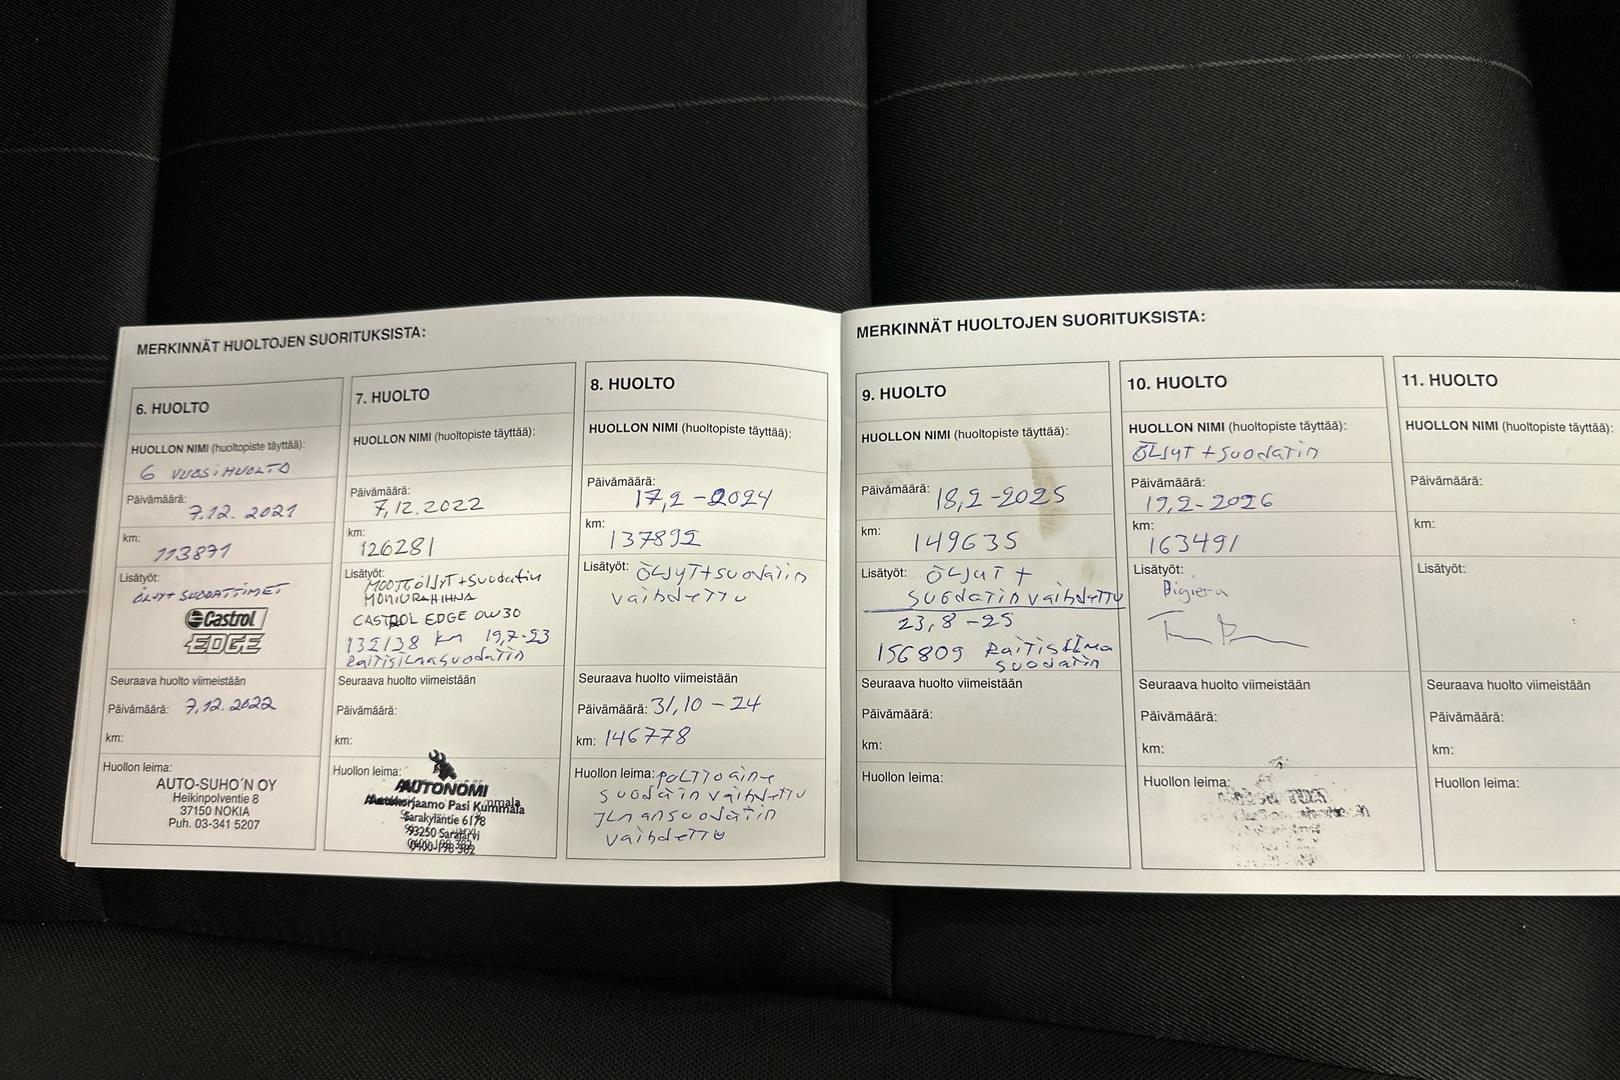 MERKINNÄT HUOLTOJEN SUORITUKSISTA:
6. HUOLTO
HUOLLON NIMI (huoltopiste täyttää):
6 VUOSIHUOLTO
Päivämäärä: 7.12. 2021
km: 113871
Lisätyöt:
ÖLJYT SUODATTIMET
Castrol
EDGE
Seuraava huolto viimeistään
Päivämäärä: 7.12.2022
km:
Huollon leima:
AUTO-SUHO´N OY
Heikinpolventie 8
37150 NOKIA
Puh. 03-341 5207
7. HUOLTO
HUOLLON NIMI (huoltopiste täyttää):
Päivämäärä: 7,12.2022
km: 126281
Lisätyöt:
+suodatin
MONIURAHIHNA
CASTROL EDGE 0W30
132138 km 19,7-23
Raitisilmasuodatin
Seuraava huolto viimeistään
Päivämäärä:
km:
Huollon leima:
AUTONOMI
Autokorjaamo Pasi Kummala
Sarakyläntie 6178
93250 Sarajärvi
0400-198 382
8. HUOLTO
HUOLLON NIMI (huoltopiste täyttää):
Päivämäärä: 17,2-2024
km: 137892
Lisätyöt: ÖLJYT+suodatin
vaihdettu
Seuraava huolto viimeistään
Päivämäärä: 31,10-24
km: 146778
Huollon leima: polttoaine
suodatin vaihdettu
ilmansuodatin
vaihdettu
MERKINNÄT HUOLTOJEN SUORITUKSISTA:
9. HUOLTO
HUOLLON NIMI (huoltopiste täyttää):
Päivämäärä: 18,2-2025
km: 149635
Lisätyöt: ÖLJYT +
suodatin vaihdettu
23,8-25
156809 Raitisilma
suodatin
Seuraava huolto viimeistään
Päivämäärä:
km:
Huollon leima:
10. HUOLTO
HUOLLON NIMI (huoltopiste täyttää):
ÖLJYT + suodatin
Päivämäärä:
19,2-2026
km:
163491
Lisätyöt:
Seuraava huolto viimeistään
Päivämäärä:
km:
Huollon leima:
11. HUOLTO
HUOLLON NIMI (huoltopiste täyttää):
Päivämäärä:
km:
Lisätyöt:
Seuraava huolto viimeistään
Päivämäärä:
km:
Huollon leima: